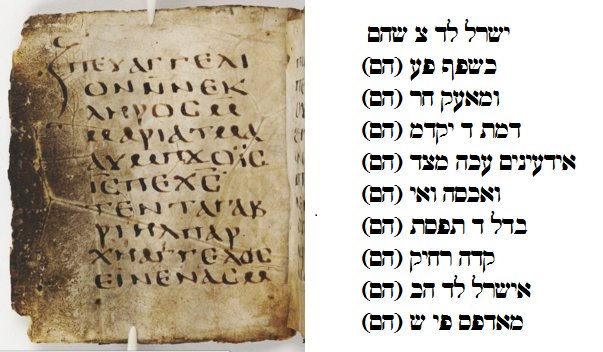 ⲡⲉⲩⲁⲅⲅⲉⲗⲓ
ⲟⲛⲛⲛⲉⲕ
ⲗⲏⲣⲟⲥⲙ
ⲙⲁⲣⲓⲁⲧⲙⲁ
ⲁⲩⲙⲡϫⲟⲓⲥ
ⲓⲥⲡⲉⲭⲥ
ⲧⲉⲛⲧⲁⲅⲁⲃ
ⲣⲓⲏⲗⲡⲁⲣ
ⲭⲏⲁⲅⲅⲉⲗⲟⲥ
ⲉⲓⲛⲉⲛⲁⲥⲙ
ישרל לד צ שהם
כשפף פע (הם)
ומאעק חר (הם)
דמת ד יקדמ (הם)
אידעינים עבה מצד (הם)
ואבסה ואי (הם)
בדל ד תפסת (הם)
קדה רחיק (הם)
אישרל לד הב (הם)
מאדפס פי ש (הם)